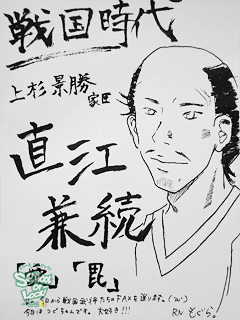 戦国時代
上杉景勝
家臣
直江
兼続
「愛」「毘」
今日から戦国武将たちのFAXを送ります。(^^)
今日はつぐちゃんです。大好き!!!
RN もぐら。